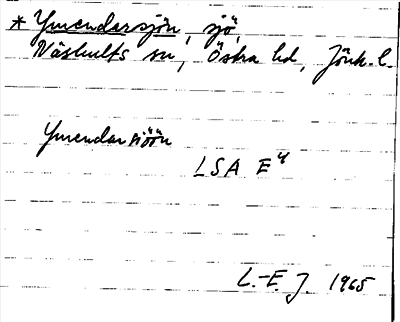 * Ymendersjön, sjö,
Näshults sn, Östra hd, Jönk. l.
Ymendarsiöön
LSA E4
L.-E. J. 1965